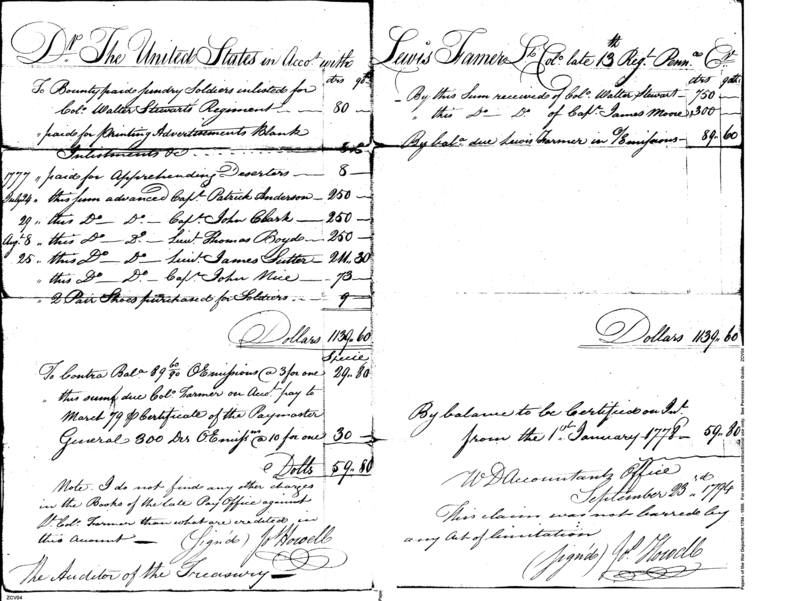 Dr. The United States in Acco.t with
drs 90ths
To Bounty paid sundry Soldiers inlisted for
Col.o Walter Stewarts Regiment — 80 —
" paid for printing Advertisements Blank
Inlistments &c
1777 " paid for Apprehending Deserters — 8 —
July 24 " this sum advanced Cap.t Patrick Anderson — 250 —
29 " this D.o — D.o — Cap.t John Clark — 250 —
Aug.t 8 " this D.o — D.o — Lieu.t Thomas Boyd — 250 —
25 " this D.o — D.o — Lieu.t James — 211 .. 30
" this D.o — D.o — Cap.t John Nice — 73 —
" 2 Pair Shoes purchased for Soldiers — 9 —
Dollars 1139 .. 60
Specie
To Contra Bal.a 89 60/90 O Emissions @ 3 for one 29 .. 80
" this sum due Col.o Farmer on Acco.t pay to
March 79 Certificate of the Paymaster
General 300 Drs O Emiss.ns @ 10 for one 30 —
Dolls 59 .. 80
Note. I do not find any other charges
in the Books of the late Pay Office against
L.t Col.o Farmer than what are credited in
this Amount — (Sign'd) Jo.s Howell
The Auditor of the Treasury —
ZCV04
Lewis Farmer L.t Col.o late 13th Reg.t Penn.a Cr.
drs 90ths
By this Sum received of Col.o Walter Stewart — 750 —
" this D.o — D.o of Cap.t James Moore 300 —
By bal.a due Lewis Farmer in O/Emissions — 89 .. 60
Dollars 1139 .. 60
By balance to be Certified on Int.
from the 1st January 1778 — 59 .. 80
W D Accountants Office
September 23rd 1794
This claim was not barred by
any Act of limitation
(Sign'd) Jo.s Howell
Papers of the War Department 1784 - 1800. For research and educational use only. See Permissions Guide. ZCV04